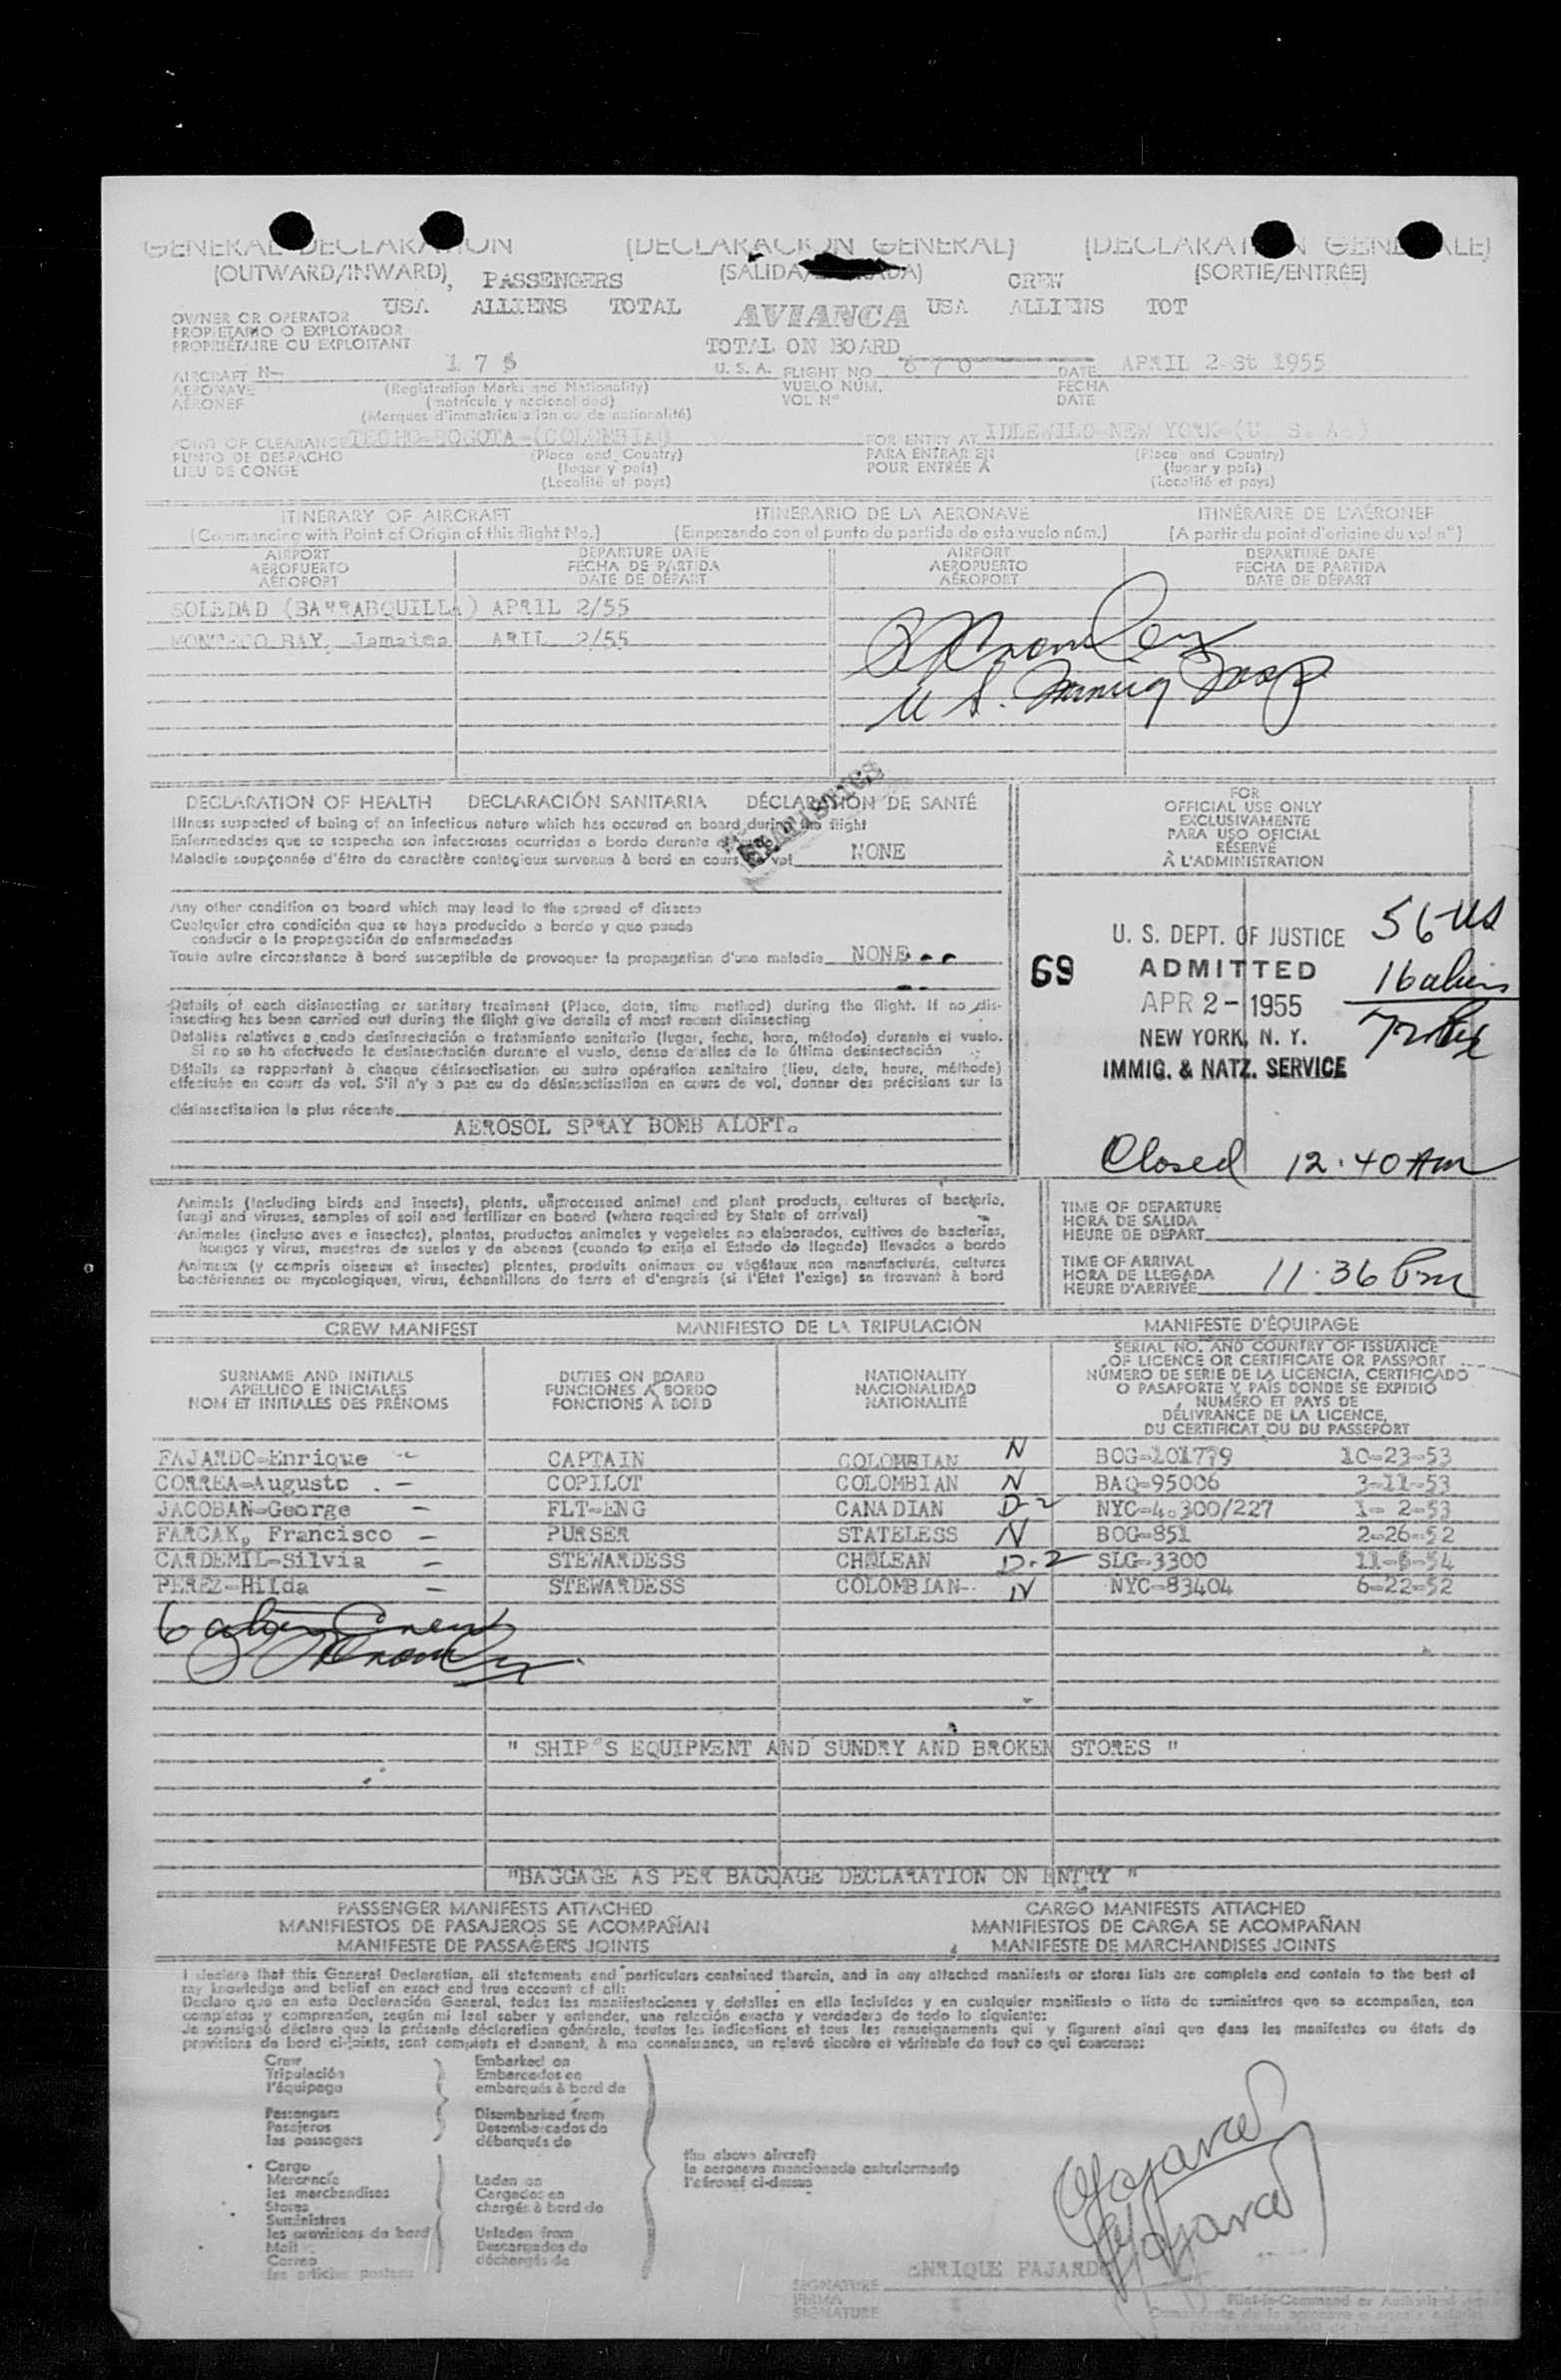 GENERAL DECLARATION (DECLARACION GENERAL) (DECLARATION GENERALE)
(OUTWARD/INWARD), PASSENGERS (SALIDA/ENTRADA) CREW (SORTIE/ENTRÉE)
USA ALLIENS TOTAL AVIANCA USA ALLIENS TOT
OWNER OR OPERATOR
PROPIETARIO O EXPLOTADOR
PROPRIÉTAIRE OU EXPLOITANT
TOTAL ON BOARD
AIRCRAFT N- 175 U. S. A. FLIGHT NO 670 DATE APRIL 2-St 1955
AERONAVE (Registration Marks and Nationality) VUELO NÚM. FECHA
AÉRONEF (matrícula y nacionalidad) VOL Nº DATE
(Marques d'immatriculation ou de nationalité)
POINT OF CLEARANCE TECHO-BOGOTA-(COLOMBIA) FOR ENTRY AT IDLEWILD-NEW YORK-(U. S. A.)
PUNTO DE DESPACHO (Place and Country) PARA ENTRAR EN (Place and Country)
LIEU DE CONGE (lugar y país) POUR ENTRÉE A (lugar y país)
(Localité et pays) (Localité et pays)
ITINERARY OF AIRCRAFT ITINERARIO DE LA AERONAVE ITINÉRAIRE DE L'AÉRONEF
(Commencing with Point of Origin of this flight No.) (Empezando con el punto de partida de esta vuelo núm.) (A partir du point d'origine du vol nº)
AIRPORT DEPARTURE DATE AIRPORT DEPARTURE DATE
AEROPUERTO FECHA DE PARTIDA AEROPUERTO FECHA DE PARTIDA
AÉROPORT DATE DE DÉPART AÉROPORT DATE DE DÉPART
SOLEDAD (BARRABQUILLA) APRIL 2/55
MONTEGO BAY, Jamaica ARIL 2/55
U S. Immig Insp
DECLARATION OF HEALTH DECLARACIÓN SANITARIA DÉCLARATION DE SANTÉ
Illness suspected of being of an infectious nature which has occured on board during the flight
Enfermedades que se sospecha son infecciosas ocurridas a bordo durante el vuelo
Maladie soupçonnée d'être de caractère contagieux survenue à bord en cours de vol NONE
Any other condition on board which may lead to the spread of disease
Cualquier otra condición que se haya producido a bordo y que pueda
conducir a la propagación de enfermedades
Toute autre circonstance à bord susceptible de provoquer la propagation d'une maladie NONE
Details of each disinsecting or sanitary treatment (Place, date, time method) during the flight. If no dis-
insecting has been carried out during the flight give details of most recent disinsecting
Detalles relativos a cada desinsectación o tratamiento sanitario (lugar, fecha, hora, método) durante el vuelo.
Si no se ha efectuado la desinsectación durante el vuelo, dense detalles de la última desinsectación
Détails se rapportant à chaque désinsectisation ou autre opération sanitaire (lieu, date, heure, méthode)
effectuée en cours de vol. S'il n'y a pas eu de désinsectisation en cours de vol, donner des précisions sur la
désinsectisation la plus récente
AEROSOL SPRAY BOMB ALOFT.
FOR
OFFICIAL USE ONLY
EXCLUSIVAMENTE
PARA USO OFICIAL
RÉSERVÉ
À L'ADMINISTRATION
U. S. DEPT. OF JUSTICE 56 US
69 ADMITTED 16 aliens
APR 2 - 1955
NEW YORK, N. Y. 72
IMMIG. & NATZ. SERVICE
Closed 12.40 Am
Animals (including birds and insects), plants, unprocessed animal and plant products, cultures of bacteria,
fungi and viruses, samples of soil and fertilizer on board (where required by State of arrival)
Animales (incluso aves e insectos), plantas, productos animales y vegetales no elaborados, cultivos de bacterias,
hongos y virus, muestras de suelos y de abonos (cuando lo exija el Estado de llegada) llevados a bordo
Animaux (y compris oiseaux et insectes) plantes, produits animaux ou végétaux non manufacturés, cultures
bactériennes ou mycologiques, virus, échantillons de terre et d'engrais (si l'État l'exige) se trouvant à bord
TIME OF DEPARTURE
HORA DE SALIDA
HEURE DE DÉPART
TIME OF ARRIVAL
HORA DE LLEGADA
HEURE D'ARRIVÉE 11.36 Pm
CREW MANIFEST MANIFIESTO DE LA TRIPULACIÓN MANIFESTE D'ÉQUIPAGE
SURNAME AND INITIALS
APELLIDO E INICIALES
NOM ET INITIALES DES PRÉNOMS
DUTIES ON BOARD
FUNCIONES A BORDO
FONCTIONS A BORD
NATIONALITY
NACIONALIDAD
NATIONALITÉ
SERIAL NO. AND COUNTRY OF ISSUANCE
OF LICENCE OR CERTIFICATE OR PASSPORT
NÚMERO DE SERIE DE LA LICENCIA, CERTIFICADO
O PASAPORTE Y PAÍS DONDE SE EXPIDIÓ
NUMÉRO ET PAYS DE
DÉLIVRANCE DE LA LICENCE,
DU CERTIFICAT OU DU PASSEPORT
FAJARDO-Enrique CAPTAIN COLOMBIAN N BOG-101779 10-23-53
CORREA-Augusto COPILOT COLOMBIAN N BAQ-95006 3-11-53
JACOBAN-George FLT-ENG CANADIAN D-2 NYC-4.300/227 1- 2-53
FARCAK, Francisco PURSER STATELESS N BOG-851 2-26-52
CARDEMIL-Silvia STEWARDESS CHILEAN D-2 SLG-3300 11-8-54
PEREZ-Hilda STEWARDESS COLOMBIAN N NYC-83404 6-22-52
6 alien Crew
" SHIP'S EQUIPMENT AND SUNDRY AND BROKEN STORES "
"BAGGAGE AS PER BAGGAGE DECLARATION ON ENTRY "
PASSENGER MANIFESTS ATTACHED CARGO MANIFESTS ATTACHED
MANIFIESTOS DE PASAJEROS SE ACOMPAÑAN MANIFIESTOS DE CARGA SE ACOMPAÑAN
MANIFESTE DE PASSAGERS JOINTS MANIFESTE DE MARCHANDISES JOINTS
I declare that this General Declaration, all statements and particulars contained therein, and in any attached manifests or stores lists are complete and contain to the best of
my knowledge and belief an exact and true account of all:
Declaro que en esta Declaración General, todas las manifestaciones y detalles en ella incluidos y en cualquier manifiesto o lista de suministros que se acompañan, son
completos y comprenden, según mi leal saber y entender, una relación exacta y verdadera de todo lo siguiente:
Je soussigné déclare que la présente déclaration générale, toutes les indications et tous les renseignements qui y figurent ainsi que dans les manifestes ou états de
provisions de bord ci-joints, sont complets et donnent, à ma connaissance, un relevé sincère et véritable de tout ce qui concerne:
Crew Embarked on
Tripulación Embarcados en
l'équipage embarqués à bord de
Passengers Disembarked from
Pasajeros Desembarcados de
les passagers débarqués de
the above aircraft
la aeronave mencionada anteriormente
l'aéronef ci-dessus
Cargo
Mercancía Laden on
les marchandises Cargados en
Stores chargés à bord de
Suministros
les provisions de bord Unladen from
Mail Descargados de
Correo déchargés de
les articles postaux
ENRIQUE FAJARDO
SIGNATURE
FIRMA
SIGNATURE
Pilot-in-Command or Authorized